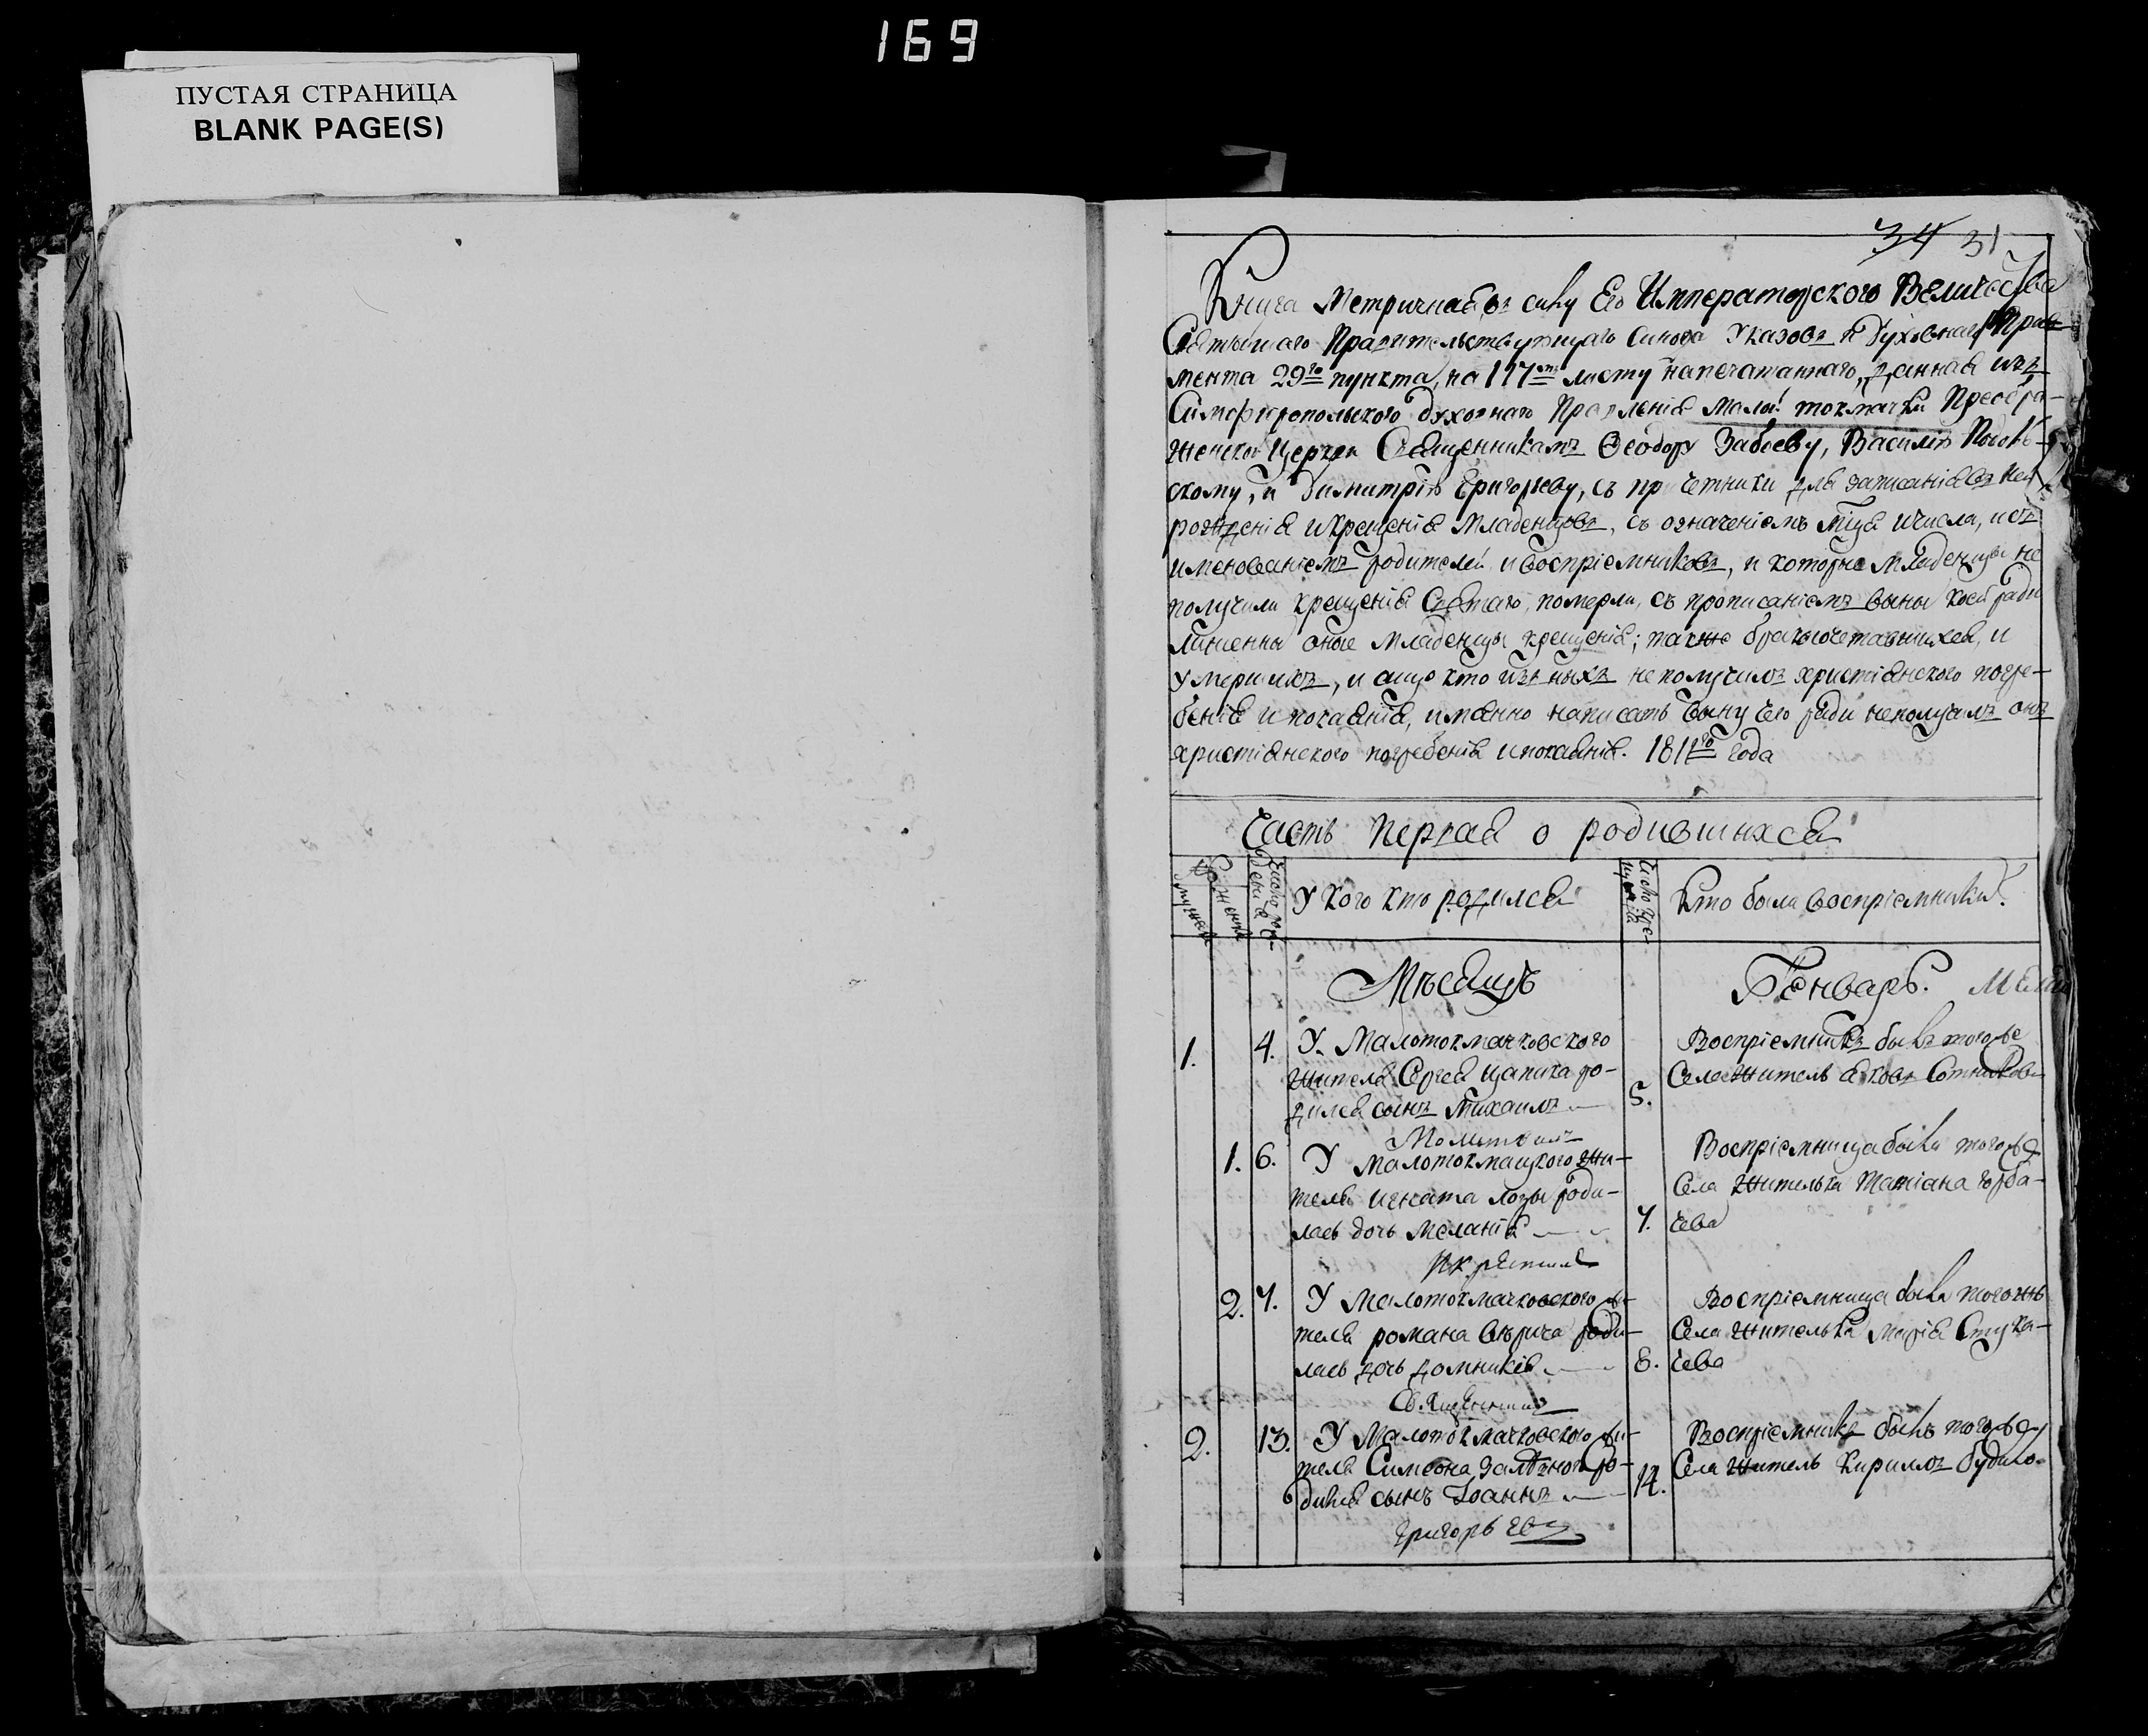 169
ПУСТАЯ СТРАНИЦА
BLANK PAGE(S)
34 31
Книга Метричная въ силу Его Императорского Величества
Святѣйшаго Правительствующаго Синода Указовъ и Духовнаго
мента 29го пункта, на 117мъ листу напечатаннаго, данная изъ
Симферопольского духовнаго Правленія Малой токмачки Преобра-
женской Церкви Священникамъ Ѳеодору Забаеву, Василію
скому, и Димитрію Григорьеву, съ причетники для записанія въ ней
рожденія и Крещенія Младенцовъ, съ означеніемъ мца и числа, и съ
именованіемъ родителей и воспріемниковъ, и которые младенцы не
получили крещенія Святаго, померли, съ прописаніемъ вины коей ради
лишенны оные Младенцы крещенія; также бракосочетавшихся, и
умершихъ, и аще кто изъ ныхъ не получилъ христіянского погре-
бенія и покаянія, имянно написать вину чего ради неполучилъ онъ
христіянского погребенія и покаянія. 1811го года
Часть Первая о родившихся
мужеска
женска
Число рож-
денія
У кого кто родился
Число кре-
щенія
Кто были воспріемники?
Мѣсяцъ
Генварь.
1. 4. У Малотокмачковского
жителя Сергея Цапика ро-
дился сынъ Михаилъ
5. Воспріемникъ былъ тогоже
Села житель Яковъ Сотников
Молитвилъ
1. 6. У малотокмацкого жи-
теля игната лозы роди-
лась дочь Меланія
7. Воспріемница была тогоже
Села жителька Татіана горба-
чева
И крестилъ
2. 7. У Малотокмачковского жи-
теля романа вѣрича роди-
лась дочь домникія
8. Воспріемница была тогожъ
Села жителька марія Стука-
чева
Священникъ
2. 13. У Малотокмачковского жи-
теля Симеона ро-
дился сынъ Іоаннъ
14. Воспріемникъ былъ тогоже
Села житель Кириллъ
Григорьевъ